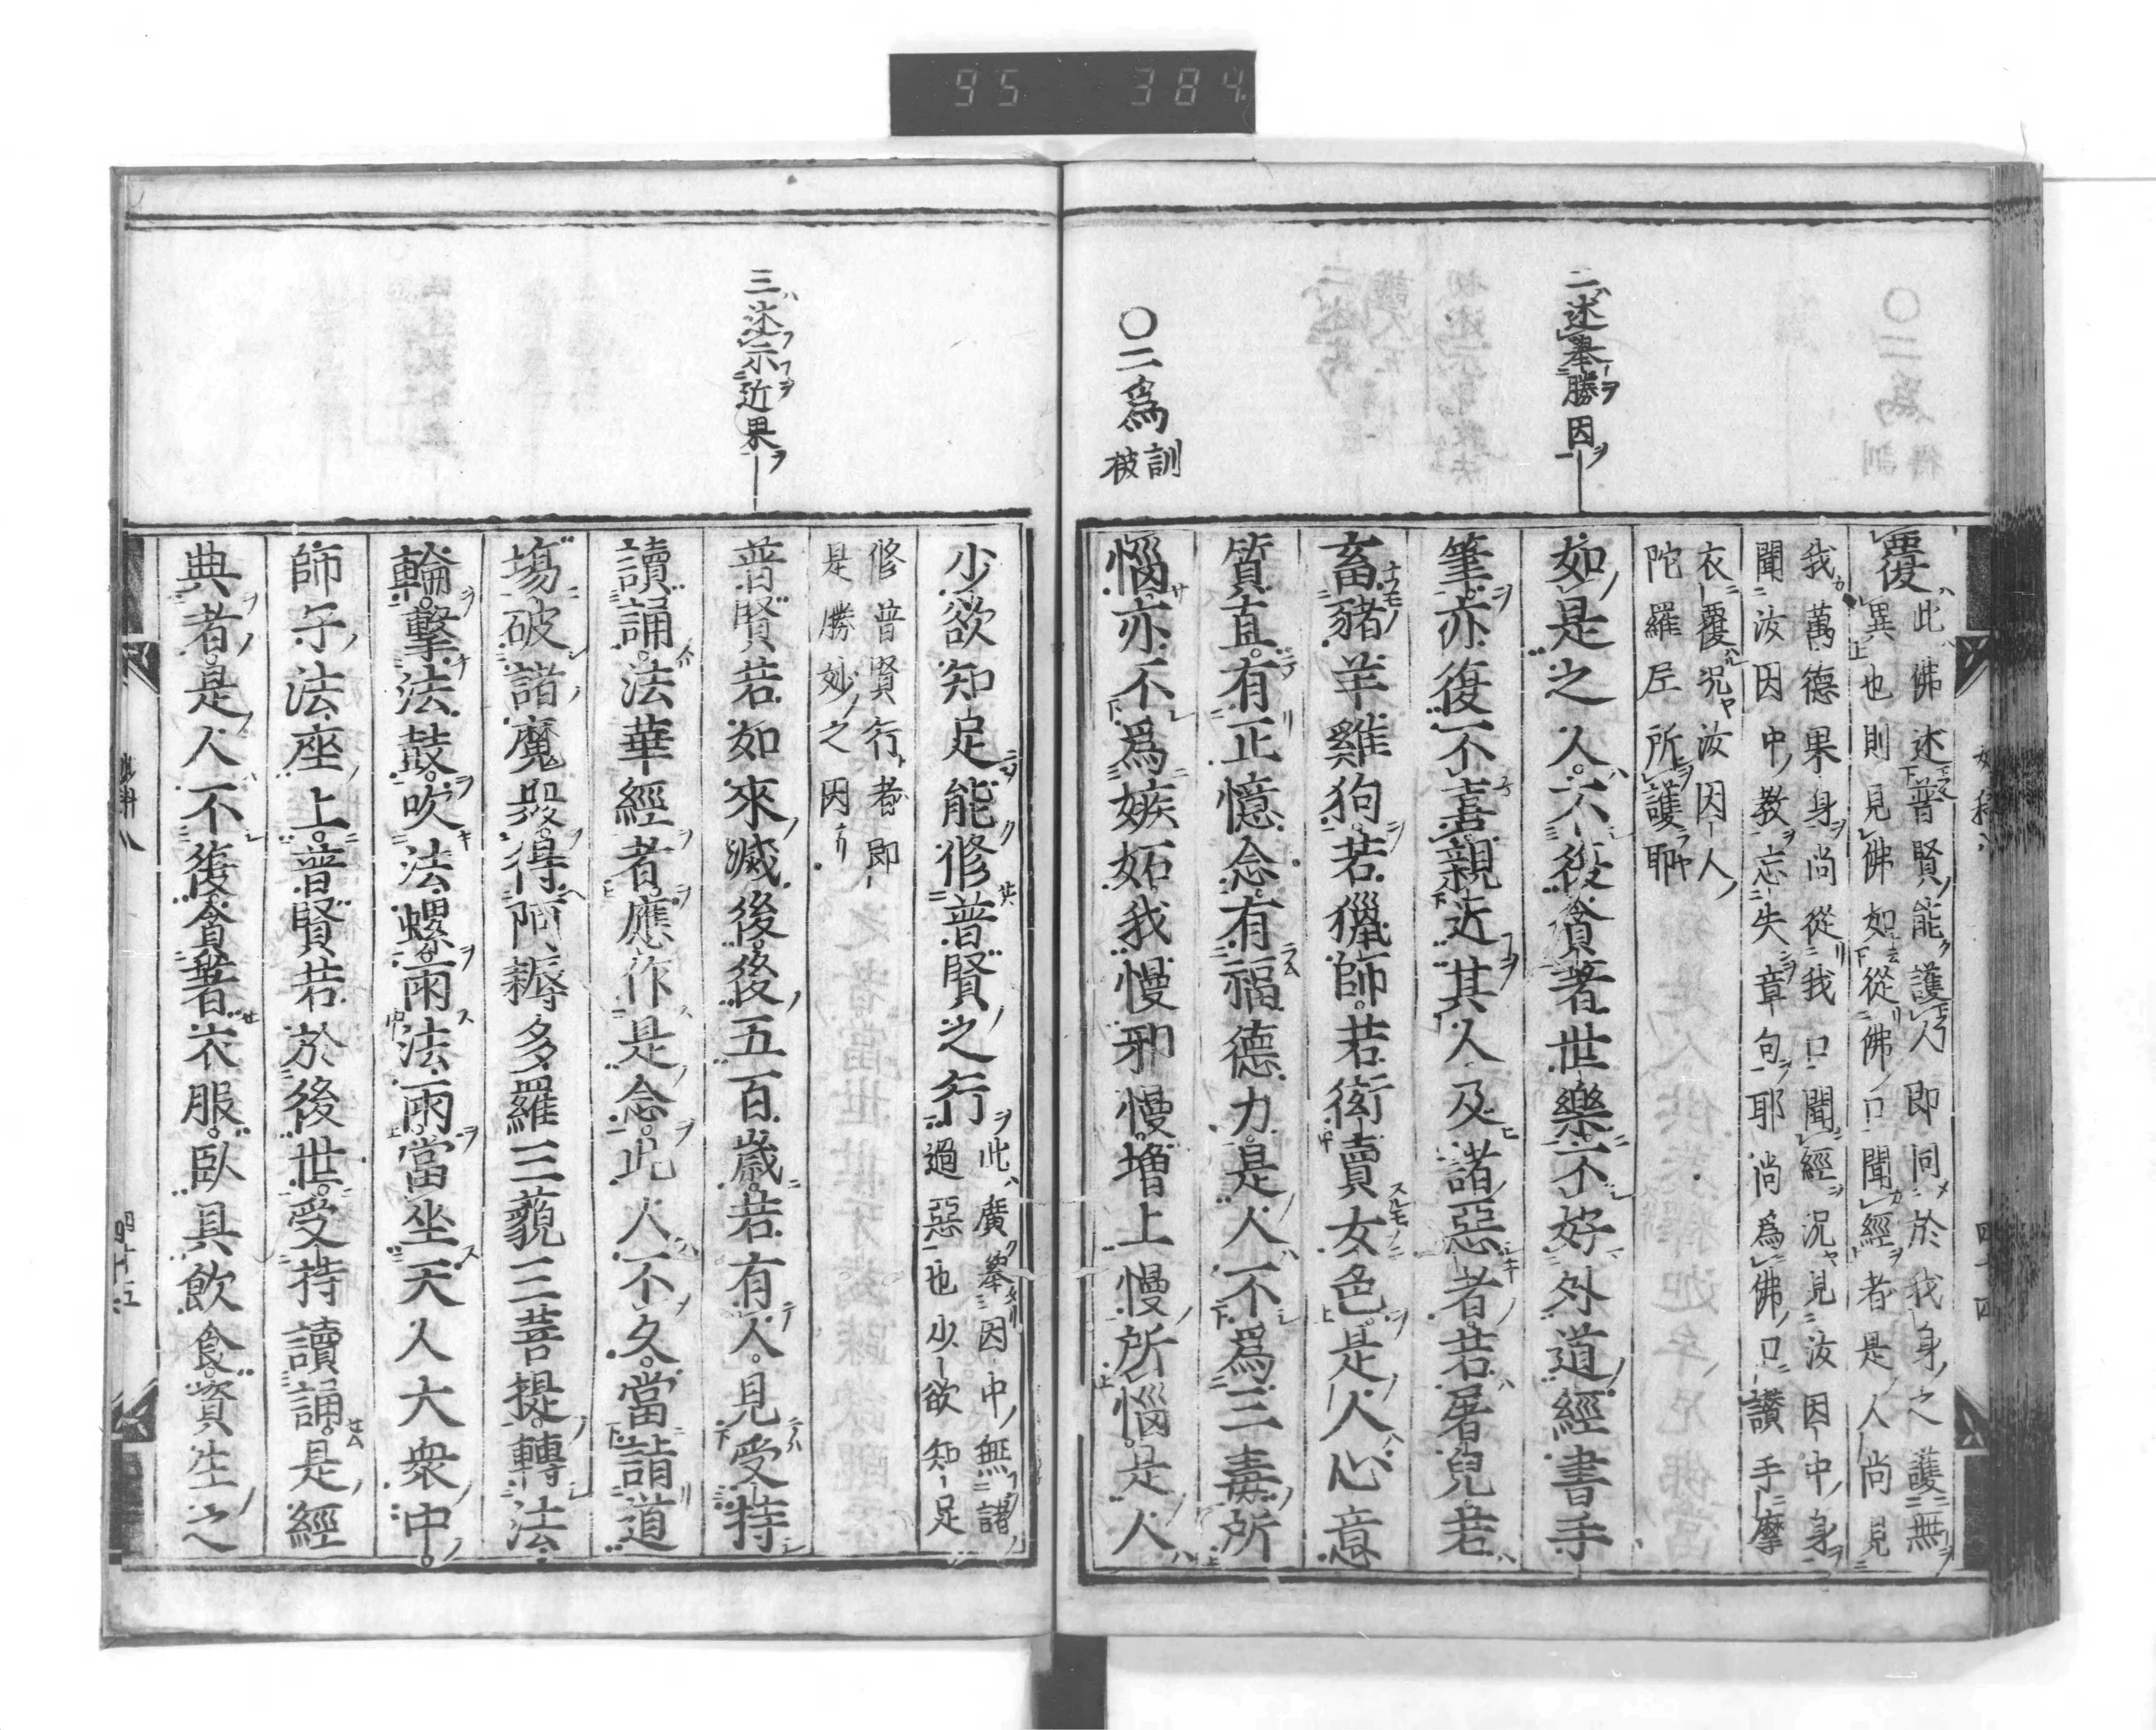 95 384
二述擧勝因
〇二爲
訓
被
覆
此佛述普賢能護人乃即同於我身之護無
異也則見佛如從佛口聞經者是人尚見
我萬德果身尚從我口聞經況見汝因中身
聞汝因中教忘失章句耶尚爲佛口讃手摩
衣覆況汝因人
陀羅尼所護耶
如是之人不復貪著世樂不好外道經書手
筆亦復不喜親近其人及諸惡者若屠兒若
畜豬羊雞狗若獵師若衒賣女色是人心意
質直有正憶念有福德力是人不爲三毒所
惱亦不爲嫉妬我慢邪慢增上慢所惱是人
三述示近果
少欲知足能修普賢之行
此廣擧因中無諸
過惡也少欲知足
修普賢行者即
是勝妙之因
普賢若如來滅後後五百歳若有人見受持
讀誦法華經者應作是念此人不久當詣道
場破諸魔衆得阿耨多羅三藐三菩提轉法
輪擊法鼓吹法螺雨法雨當坐天人大衆中
師子法座上普賢若於後世受持讀誦是經
典者是人不復貪著衣服臥具飮食資生之
四十五